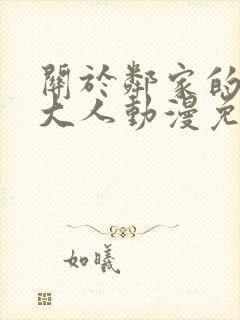 關於鄰家的
大人動漫免
如曦